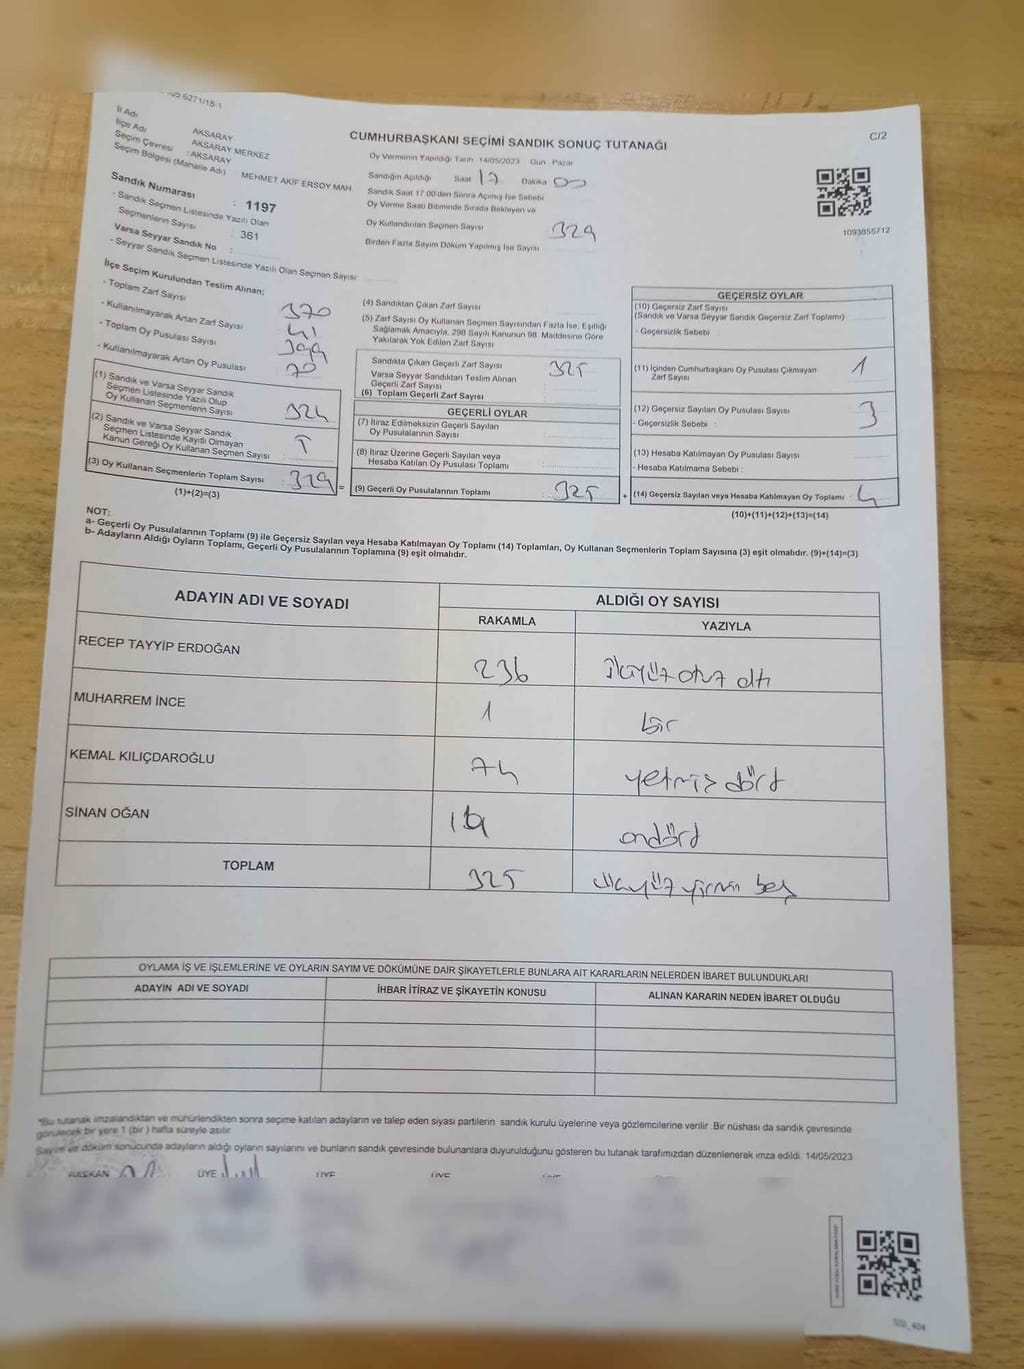 6271/18-1
C/2
İl Adı
AKSARAY
İlçe Adı
AKSARAY MERKEZ
Seçim Çevresi : AKSARAY
Seçim Bölgesi (Mahalle Adı) MEHMET AKİF ERSOY MAH
Sandık Numarası : 1197
- Sandık Seçmen Listesinde Yazılı Olan
Seçmenlerin Sayısı : 361
Varsa Seyyar Sandık No :
- Seyyar Sandık Seçmen Listesinde Yazılı Olan Seçmen Sayısı
CUMHURBAŞKANI SEÇİMİ SANDIK SONUÇ TUTANAĞI
Oy Vermenin Yapıldığı Tarih 14/05/2023 Gün Pazar
Sandığın Açıldığı Saat 17 Dakika 00
Sandık Saat 17:00'den Sonra Açılmış İse Sebebi
Oy Verme Saati Bitiminde Sırada Bekleyen ve
Oy Kullandırılan Seçmen Sayısı 329
Birden Fazla Sayım Döküm Yapılmış İse Sayısı
1093655712
İlçe Seçim Kurulundan Teslim Alınan;
- Toplam Zarf Sayısı 370
- Kullanılmayarak Artan Zarf Sayısı 41
- Toplam Oy Pusulası Sayısı 399
- Kullanılmayarak Artan Oy Pusulası 70
(1) Sandık ve Varsa Seyyar Sandık
Seçmen Listesinde Yazılı Olup
Oy Kullanan Seçmenlerin Sayısı 324
(2) Sandık ve Varsa Seyyar Sandık
Seçmen Listesinde Kayıtlı Olmayan
Kanun Gereği Oy Kullanan Seçmen Sayısı 5
(3) Oy Kullanan Seçmenlerin Toplam Sayısı 329 =
(1)+(2)=(3)
(4) Sandıktan Çıkan Zarf Sayısı
(5) Zarf Sayısı Oy Kullanan Seçmen Sayısından Fazla İse, Eşitliği
Sağlamak Amacıyla, 298 Sayılı Kanunun 98. Maddesine Göre
Yakılarak Yok Edilen Zarf Sayısı
Sandıkta Çıkan Geçerli Zarf Sayısı 325
Varsa Seyyar Sandıktan Teslim Alınan
Geçerli Zarf Sayısı
(6) Toplam Geçerli Zarf Sayısı
GEÇERLİ OYLAR
(7) İtiraz Edilmeksizin Geçerli Sayılan
Oy Pusulalarının Sayısı
(8) İtiraz Üzerine Geçerli Sayılan veya
Hesaba Katılan Oy Pusulası Toplamı
(9) Geçerli Oy Pusulalarının Toplamı 325 +
GEÇERSİZ OYLAR
(10) Geçersiz Zarf Sayısı
(Sandık ve Varsa Seyyar Sandık Geçersiz Zarf Toplamı)
- Geçersizlik Sebebi :
(11) İçinden Cumhurbaşkanı Oy Pusulası Çıkmayan
Zarf Sayısı 1
(12) Geçersiz Sayılan Oy Pusulası Sayısı 3
- Geçersizlik Sebebi :
(13) Hesaba Katılmayan Oy Pusulası Sayısı
- Hesaba Katılmama Sebebi :
(14) Geçersiz Sayılan veya Hesaba Katılmayan Oy Toplamı : 4
(10)+(11)+(12)+(13)=(14)
NOT:
a- Geçerli Oy Pusulalarının Toplamı (9) ile Geçersiz Sayılan veya Hesaba Katılmayan Oy Toplamı (14) Toplamları, Oy Kullanan Seçmenlerin Toplam Sayısına (3) eşit olmalıdır. (9)+(14)=(3)
b- Adayların Aldığı Oyların Toplamı, Geçerli Oy Pusulalarının Toplamına (9) eşit olmalıdır.
ADAYIN ADI VE SOYADI
ALDIĞI OY SAYISI
RAKAMLA YAZIYLA
RECEP TAYYİP ERDOĞAN 236 ikiyüz otuz altı
MUHARREM İNCE 1 bir
KEMAL KILIÇDAROĞLU 74 yetmiş dört
SİNAN OĞAN 14 ondört
TOPLAM 325 üçyüz yirmi beş
OYLAMA İŞ VE İŞLEMLERİNE VE OYLARIN SAYIM VE DÖKÜMÜNE DAİR ŞİKAYETLERLE BUNLARA AİT KARARLARIN NELERDEN İBARET BULUNDUKLARI
ADAYIN ADI VE SOYADI İHBAR İTİRAZ VE ŞİKAYETİN KONUSU ALINAN KARARIN NEDEN İBARET OLDUĞU
*Bu tutanak imzalandıktan ve mühürlendikten sonra seçime katılan adayların ve talep eden siyasi partilerin sandık kurulu üyelerine veya gözlemcilerine verilir .Bir nüshası da sandık çevresinde
görülecek bir yere 1 (bir ) hafta süreyle asılır
Sayım ve döküm sonucunda adayların aldığı oyların sayılarını ve bunların sandık çevresinde bulunanlara duyurulduğunu gösteren bu tutanak tarafımızdan düzenlenerek imza edildi. 14/05/2023
BAŞKAN ÜYE ÜYE ÜYE